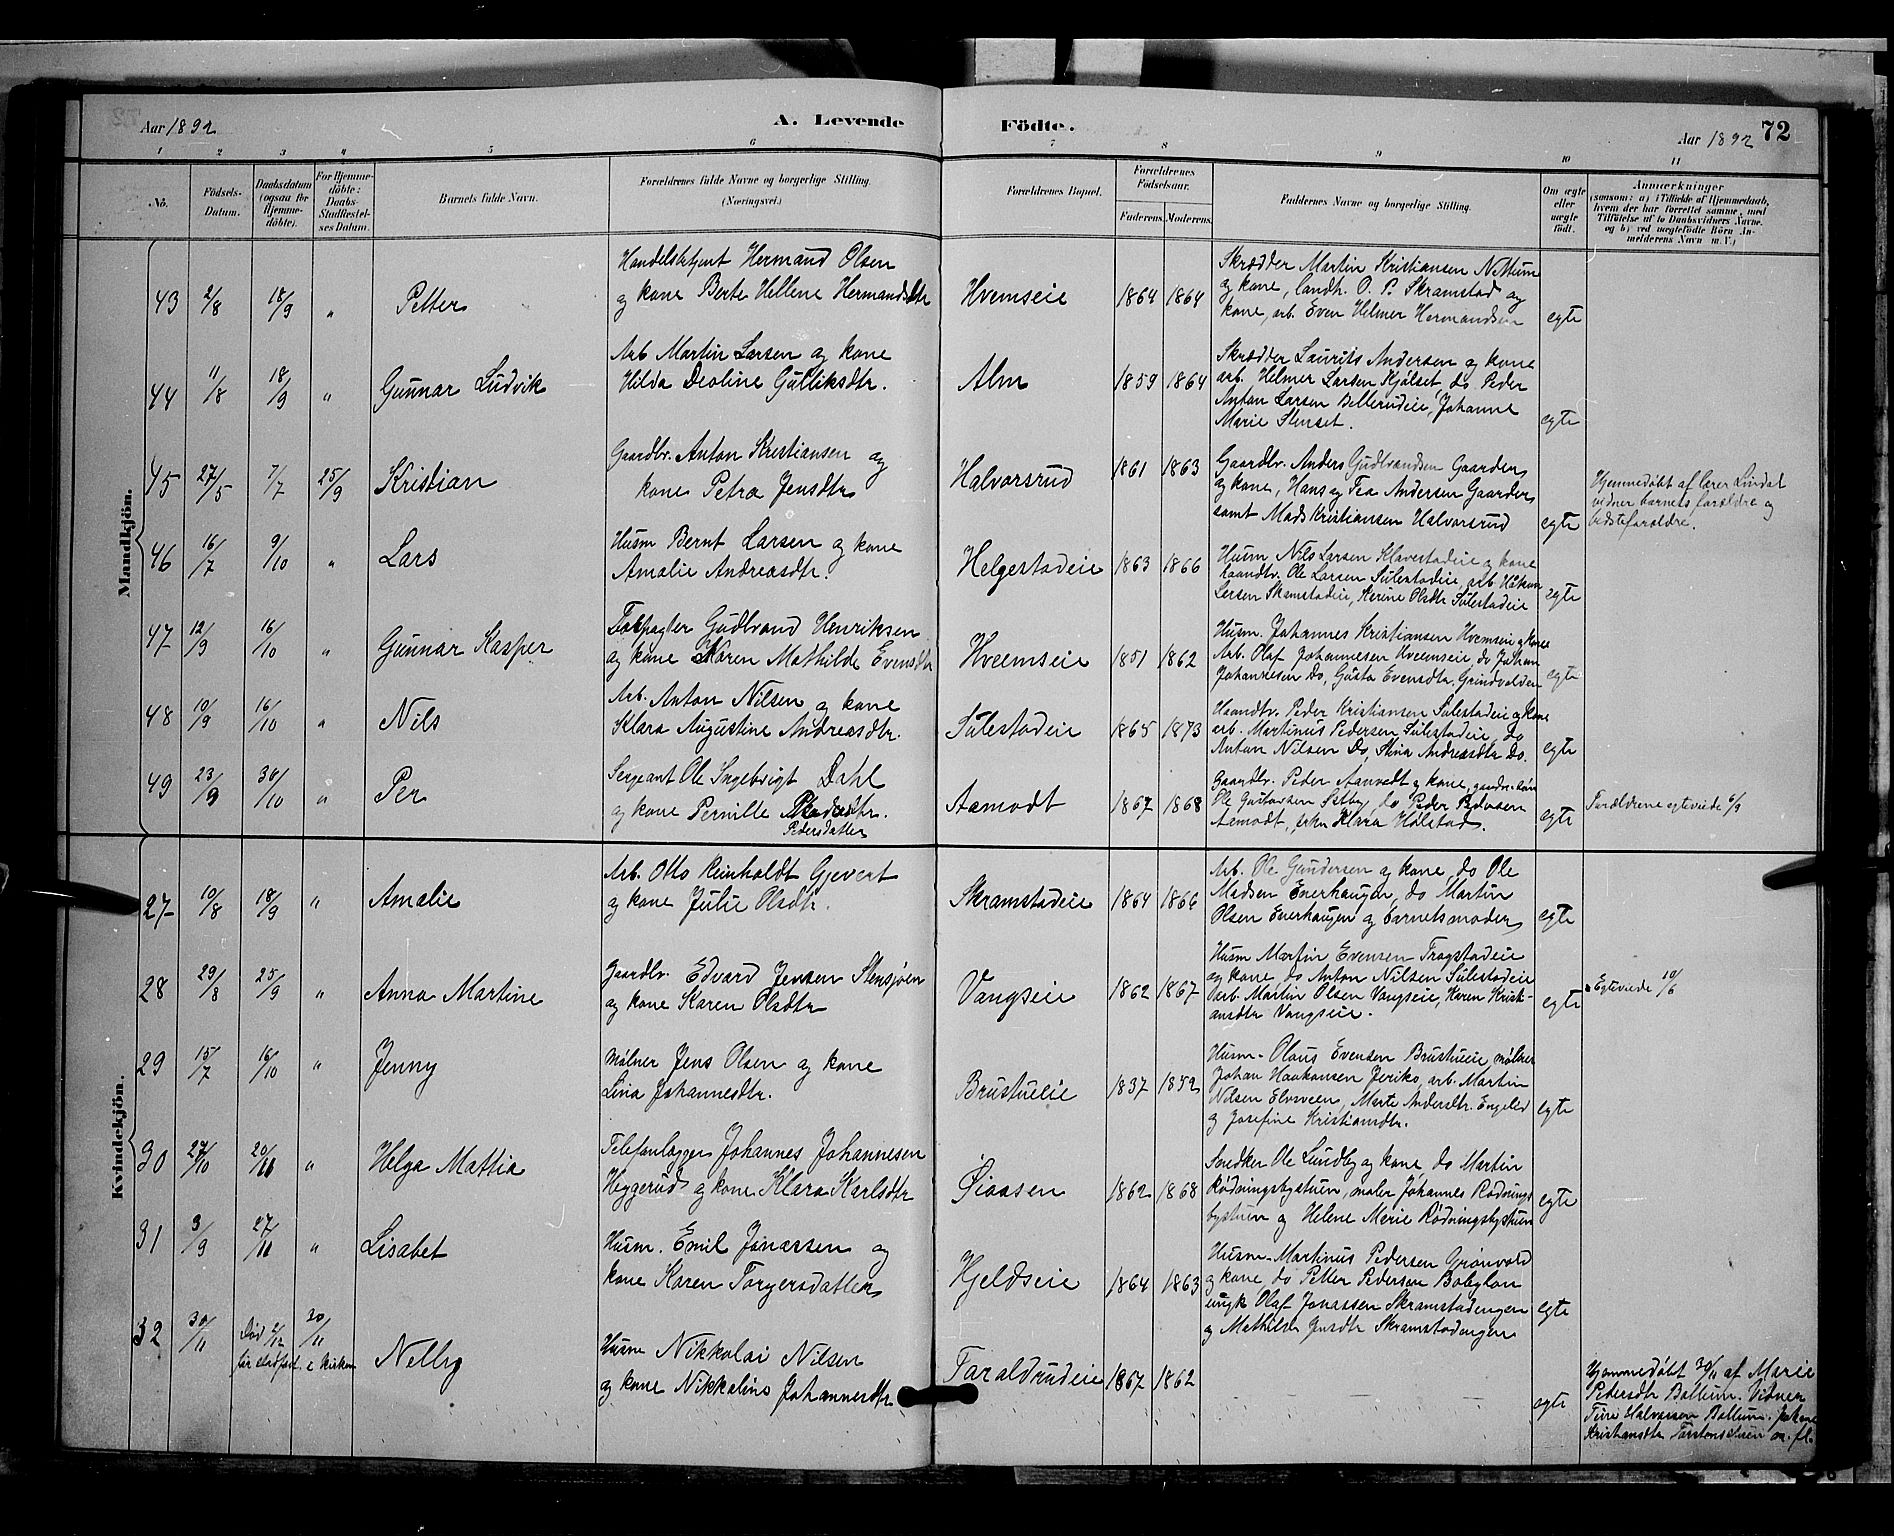 Aar 1892
A. Levende Födte.
Aar 1892 72
1 2 3 4 5 6 7 8 9 10 11
No.
Födsels-Datum.
Daabsdatum (ogsaa for Hjemmedöbte).
For Hjemmedöbte: Daabs-Stadfæstelses Datum.
Barnets fulde Navn.
Forældrenes fulde Navne og borgerlige Stilling.
(Næringsvei.)
Forældrenes Bopæl.
Forældrenes Födselsaar.
Faderens. Moderens.
Faddernes Navne og borgerlige Stilling.
Om ægte eller uægte födt.
Anmærkninger
(saasom: a) i Tilfælde af Hjemmedaab,
hvem der har forrettet samme, med
Tilföielse af to Daabsvidners Navne.
og b) ved uægtefödte Börn Anmelderens Navn m. V.)
Mandkjön.
43 2/8 18/9 " Petter
Handelsbetjent Hermand Olsen
og kone Berte Hellene Hermandsdtr
Hvemseie 1864 1864
Skrædder Martin Kristiansen Nettum
og kone, landh. O. P. Skramstad og
kone, arb. Even Helmer Hermandsen
egte
44 11/8 18/9 " Gunnar Ludvik
Arb. Martin Larsen og kone
Hilda Deoline Gulliksdtr.
Alm 1859 1864
Skrædder Laurits Andersen og kone
arb. Helmer Larsen Kjølset do Peder
Anton Larsen Bellerudeie, Johanne
Marie Stenset.
egte
45 27/5 7/7 25/9 Kristian
Gaardbr. Anton Kristiansen og
kone Petra Jensdtr
Halvorsrud 1861 1863
Gaardbr. Anders Gudbrandsen Gaarder
og kone, Hans og Tea Andersen Gaarder
samt Mads Kristiansen Halvorsrud
egte
Hjemmedøbt af lærer Lindal
vidner barnets forældre og
bedsteforældre.
46 16/7 9/10 " Lars
Husm Bernt Larsen og kone
Amalie Andreasdtr.
Helgestadeie 1863 1866
Husm Nils Larsen Klavestadeie og kone
haandtv. Ole Larsen Sulestadeie, arb. Håkon
Larsen Skamstadeie, Karine Olsdtr Sulestadeie
egte
47 12/9 16/10 " Gunnar Kasper
Forpagter Gudbrand Henriksen
og kone Karen Mathilde Evensdtr
Hveemseie 1851 1862
Husm. Johannes Kristiansen Hvemseie og kone
Arb. Olaf Johannesen Hveemseie, do Johan
Johannesen do, Gusta Evensdtr. Grindvolden
egte
48 10/9 16/10 " Nils
Arb. Anton Nilsen og kone
Klara Augustine Andreasdtr.
Sulestadeie 1865 1873
Haandtv. Peder Kristiansen Sulestadeie og kone
arb. Martinus Pedersen Sulestadeie, do
Anton Nilsen Do, Stina Andreasdtr Do.
egte
49 23/9 30/10 " Per
Sergeant Ole Ingebrigt Dahl
og kone Pernille
Pedersdatter
Aamodt 1867 1868
Gaardbr. Peder Aanvedt og kone, gaardbr. søn
Ole Gustavsen Sætby do Peder Pedersen
Aamodt, frkn Klara Holstad.
egte
Forældrene egteviede 6/9
Kvindekjön.
27 10/8 18/9 " Amalie
Arb. Otto Reinholdt Gjevert
og kone Julie Olsdtr.
Skramstadeie 1864 1866
Arb. Ole Gundersen og kone, do Ole
Madsen Enerhaugen, do Martin
Olsen Enerhaugen og barnets moder
egte
28 29/8 25/9 " Anna Martine
Gaardbr. Edvard Jensen Stensjøen
og kone Karen Olsdtr
Vangseie 1862 1867
Husm Martin Evensen Frogstadeie
og kone, do Anton Nilsen Sulestadeie
arb. Martin Olsen Vangseie, Karen Kristi-
ansdtr Vangseie.
egte
Egteviede 10/6
29 15/7 16/10 " Jenny
Mølner Jens Olsen og kone
Lina Johannesdtr.
Brustueeie 1837 1852
Husm. Olaus Evensen Brustueie, mølner
Johan Haakonsen Jeriko, arb. Martin
Nilsen Elvsveen, Marte Andersdtr. Engelid
og Josefine Kristiansdtr.
egte
30 27/10 20/11 " Helga Mattia
Telefonlægger Johannes Johannesen
Heggerud og kone Klara Karlsdtr
Øiaasen 1862 1868
Snedker Ole Lundby og kone do Martin
Rødningsbystuen, maler Johannes Rødnings-
bystuen og Helene Marie Rødningsbystuen
egte
31 3/9 27/11 " Lisabet
Husm. Emil Jonassen og
kone Karen Torgersdatter
Hjeldseie 1864 1863
Husm. Martinus Pedersen Grønvold
og kone do Petter Pedersen Babylon
ungk Olaf Jonassen Skramstadengen
og Mathilde Jensdtr Skramstadengen
egte
32 30/11 Død 2/12 før stadfæst. i kirken 30/11 Nelly
Husm Nikkolai Nilsen
og kone Nikkoline Johannesdtr.
Taraldrudeie 1867 1862
egte
Hjemmedøbt 30/11 af Marie
Pedersdtr Ballum. Vidner
Halvorsen Ballum. Johane
Kristiansdtr Torstenstuen m. fl.